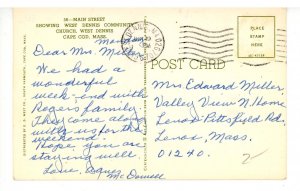 58—MAIN STREET
SHOWING WEST DENNIS COMMUNITY
CHURCH, WEST DENNIS
CAPE COD, MASS.
PLACE
STAMP
HERE
POST CARD
Dear Mrs Miller
We had a
wonderful
week-end with
Rogers family.
They came along
with us for the
weekend.
Hope you are
staying well
Love,
Mc Donnell
Mrs Edward Miller
Valley View N. Home
Lenox-Pittsfield Rd.
Lenox, Mass.
01240.
2